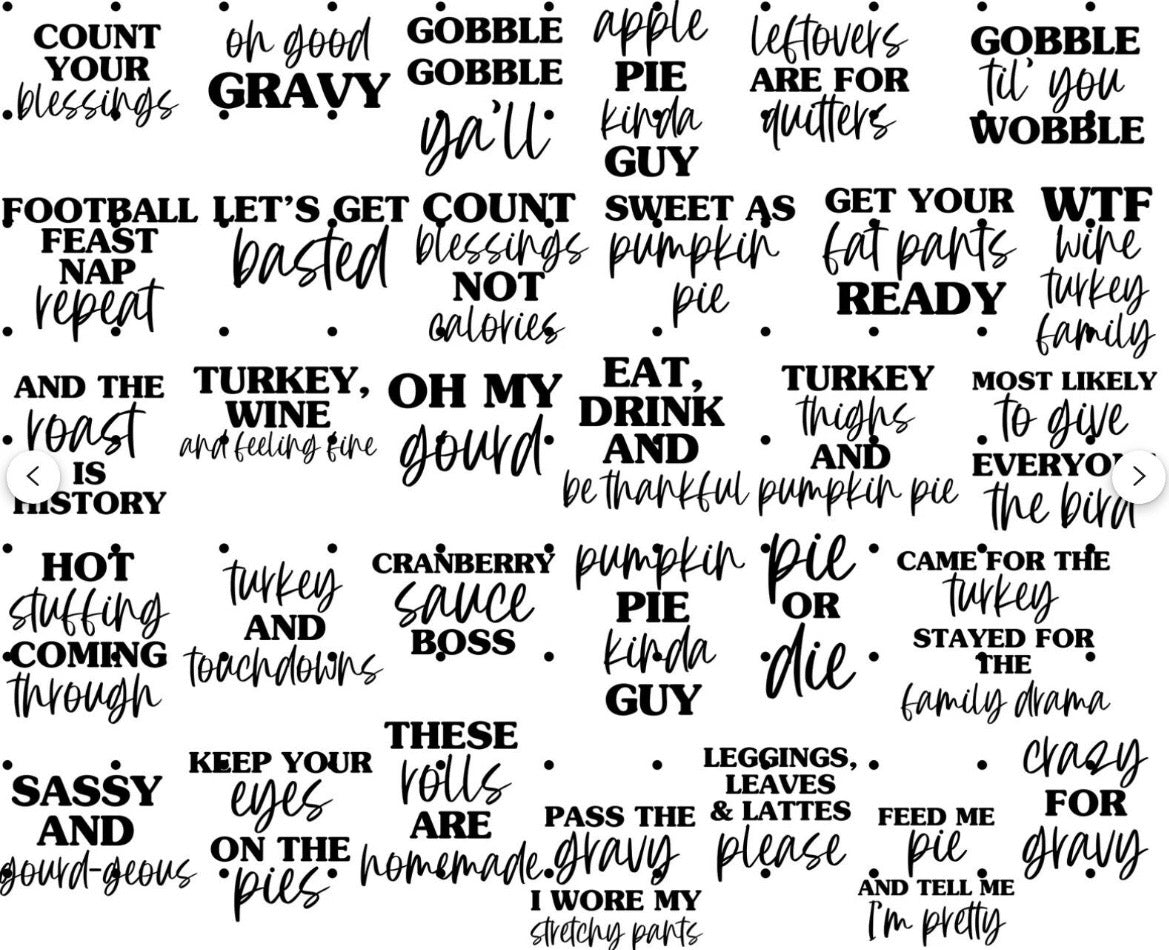 COUNT
YOUR
blessings
oh good
GRAVY
GOBBLE
GOBBLE
ya'll
apple
PIE
kinda
GUY
leftovers
ARE FOR
quitters
GOBBLE
til' you
WOBBLE
FOOTBALL
FEAST
NAP
repeat
LET'S GET
basted
COUNT
blessings
NOT
calories
SWEET AS
pumpkin
pie
GET YOUR
fat pants
READY
WTF
wine
turkey
family
AND THE
roast
IS
HISTORY
TURKEY,
WINE
and feeling fine
OH MY
gourd
EAT,
DRINK
AND
be thankful
TURKEY
thighs
AND
pumpkin pie
MOST LIKELY
to give
EVERYO
the bird
HOT
stuffing
COMING
through
turkey
AND
touchdowns
CRANBERRY
sauce
BOSS
pumpkin
PIE
kinda
GUY
pie
OR
die
CAME FOR THE
turkey
STAYED FOR
THE
family drama
SASSY
AND
gourd-geous
KEEP YOUR
eyes
ON THE
pies
THESE
rolls
ARE
homemade
PASS THE
gravy
I WORE MY
stretchy pants
LEGGINGS,
LEAVES
& LATTES
please
FEED ME
pie
AND TELL ME
I'm pretty
crazy
FOR
gravy